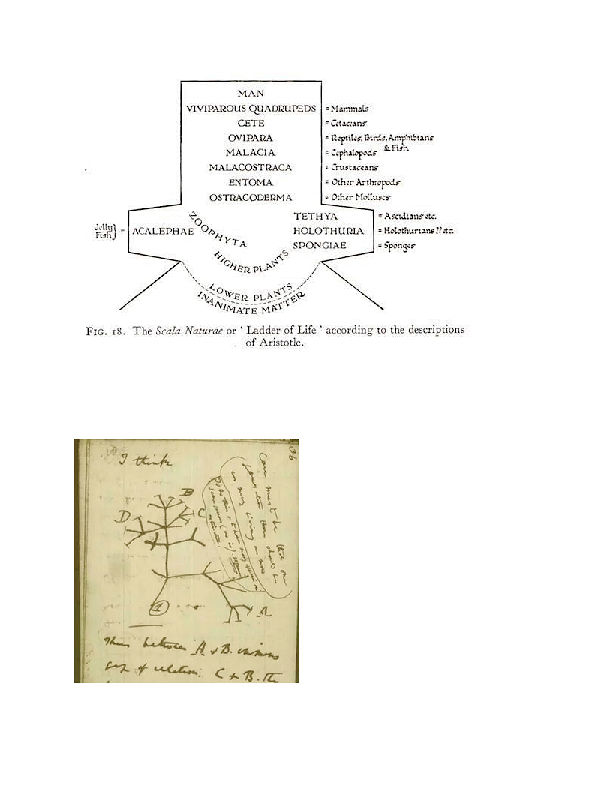 MAN
VIVIPAROUS QUADRUPEDS = Mammals
CETE = Cetacians
OVIPARA = Reptiles, Birds, Amphibians & Fish
MALACIA = Cephalopods
MALACOSTRACA = Crustaceans
ENTOMA = Other Arthropods
OSTRACODERMA = Other Molluscs
Jelly Fish } = ACALEPHAE
ZOOPHYTA
TETHYA = Ascidians etc.
HOLOTHURIA = Holothurians
SPONGIAE = Sponges
HIGHER PLANTS
LOWER PLANTS
INANIMATE MATTER
FIG. 18. The Scala Naturae or ' Ladder of Life ' according to the descriptions
of Aristotle.
36
I think
Case must be that one
generation then should be
as many living as now
B
D
C
A
1
Thus between A & B. immense
gap of relation. C & B. the